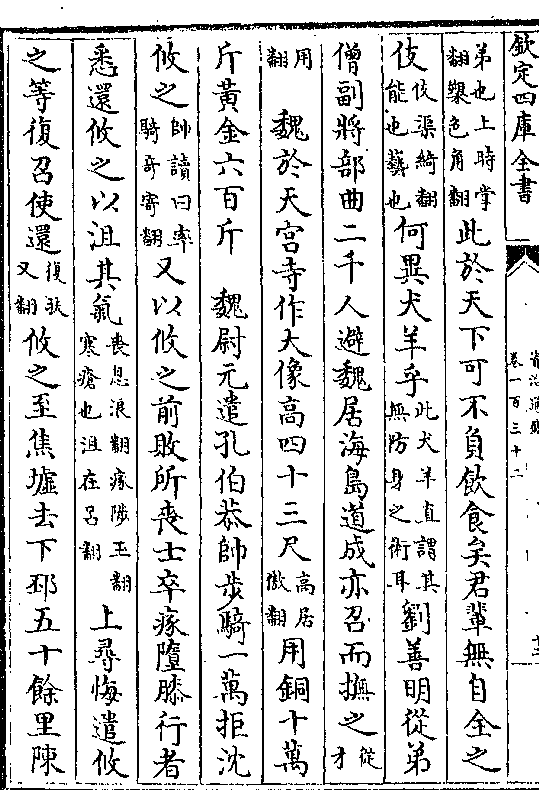 欽定四庫全書
資治通鑑
卷一百三十二
弟也上時掌
翻槊色角翻
此於天下可不負飲食矣君輩無自全之
伎
伎渠綺翻
能也藝也
何異犬羊乎
此犬羊直謂其
無防身之術耳
劉善明從弟
僧副將部曲二千人避魏居海島道成亦召而撫之
從
才
用
翻
魏於天宮寺作大像高四十三尺
高居
傲翻
用銅十萬
斤黃金六百斤 魏尉元遣孔伯恭帥步騎一萬拒沈
攸之
帥讀曰率
騎奇寄翻
又以攸之前敗所喪士卒瘃墮膝行者
悉還攸之以沮其氣
喪息浪翻瘃陟玉翻
寒瘡也沮在呂翻
上尋悔遣攸
之等復召使還
復扶
又翻
攸之至焦墟去下邳五十餘里陳